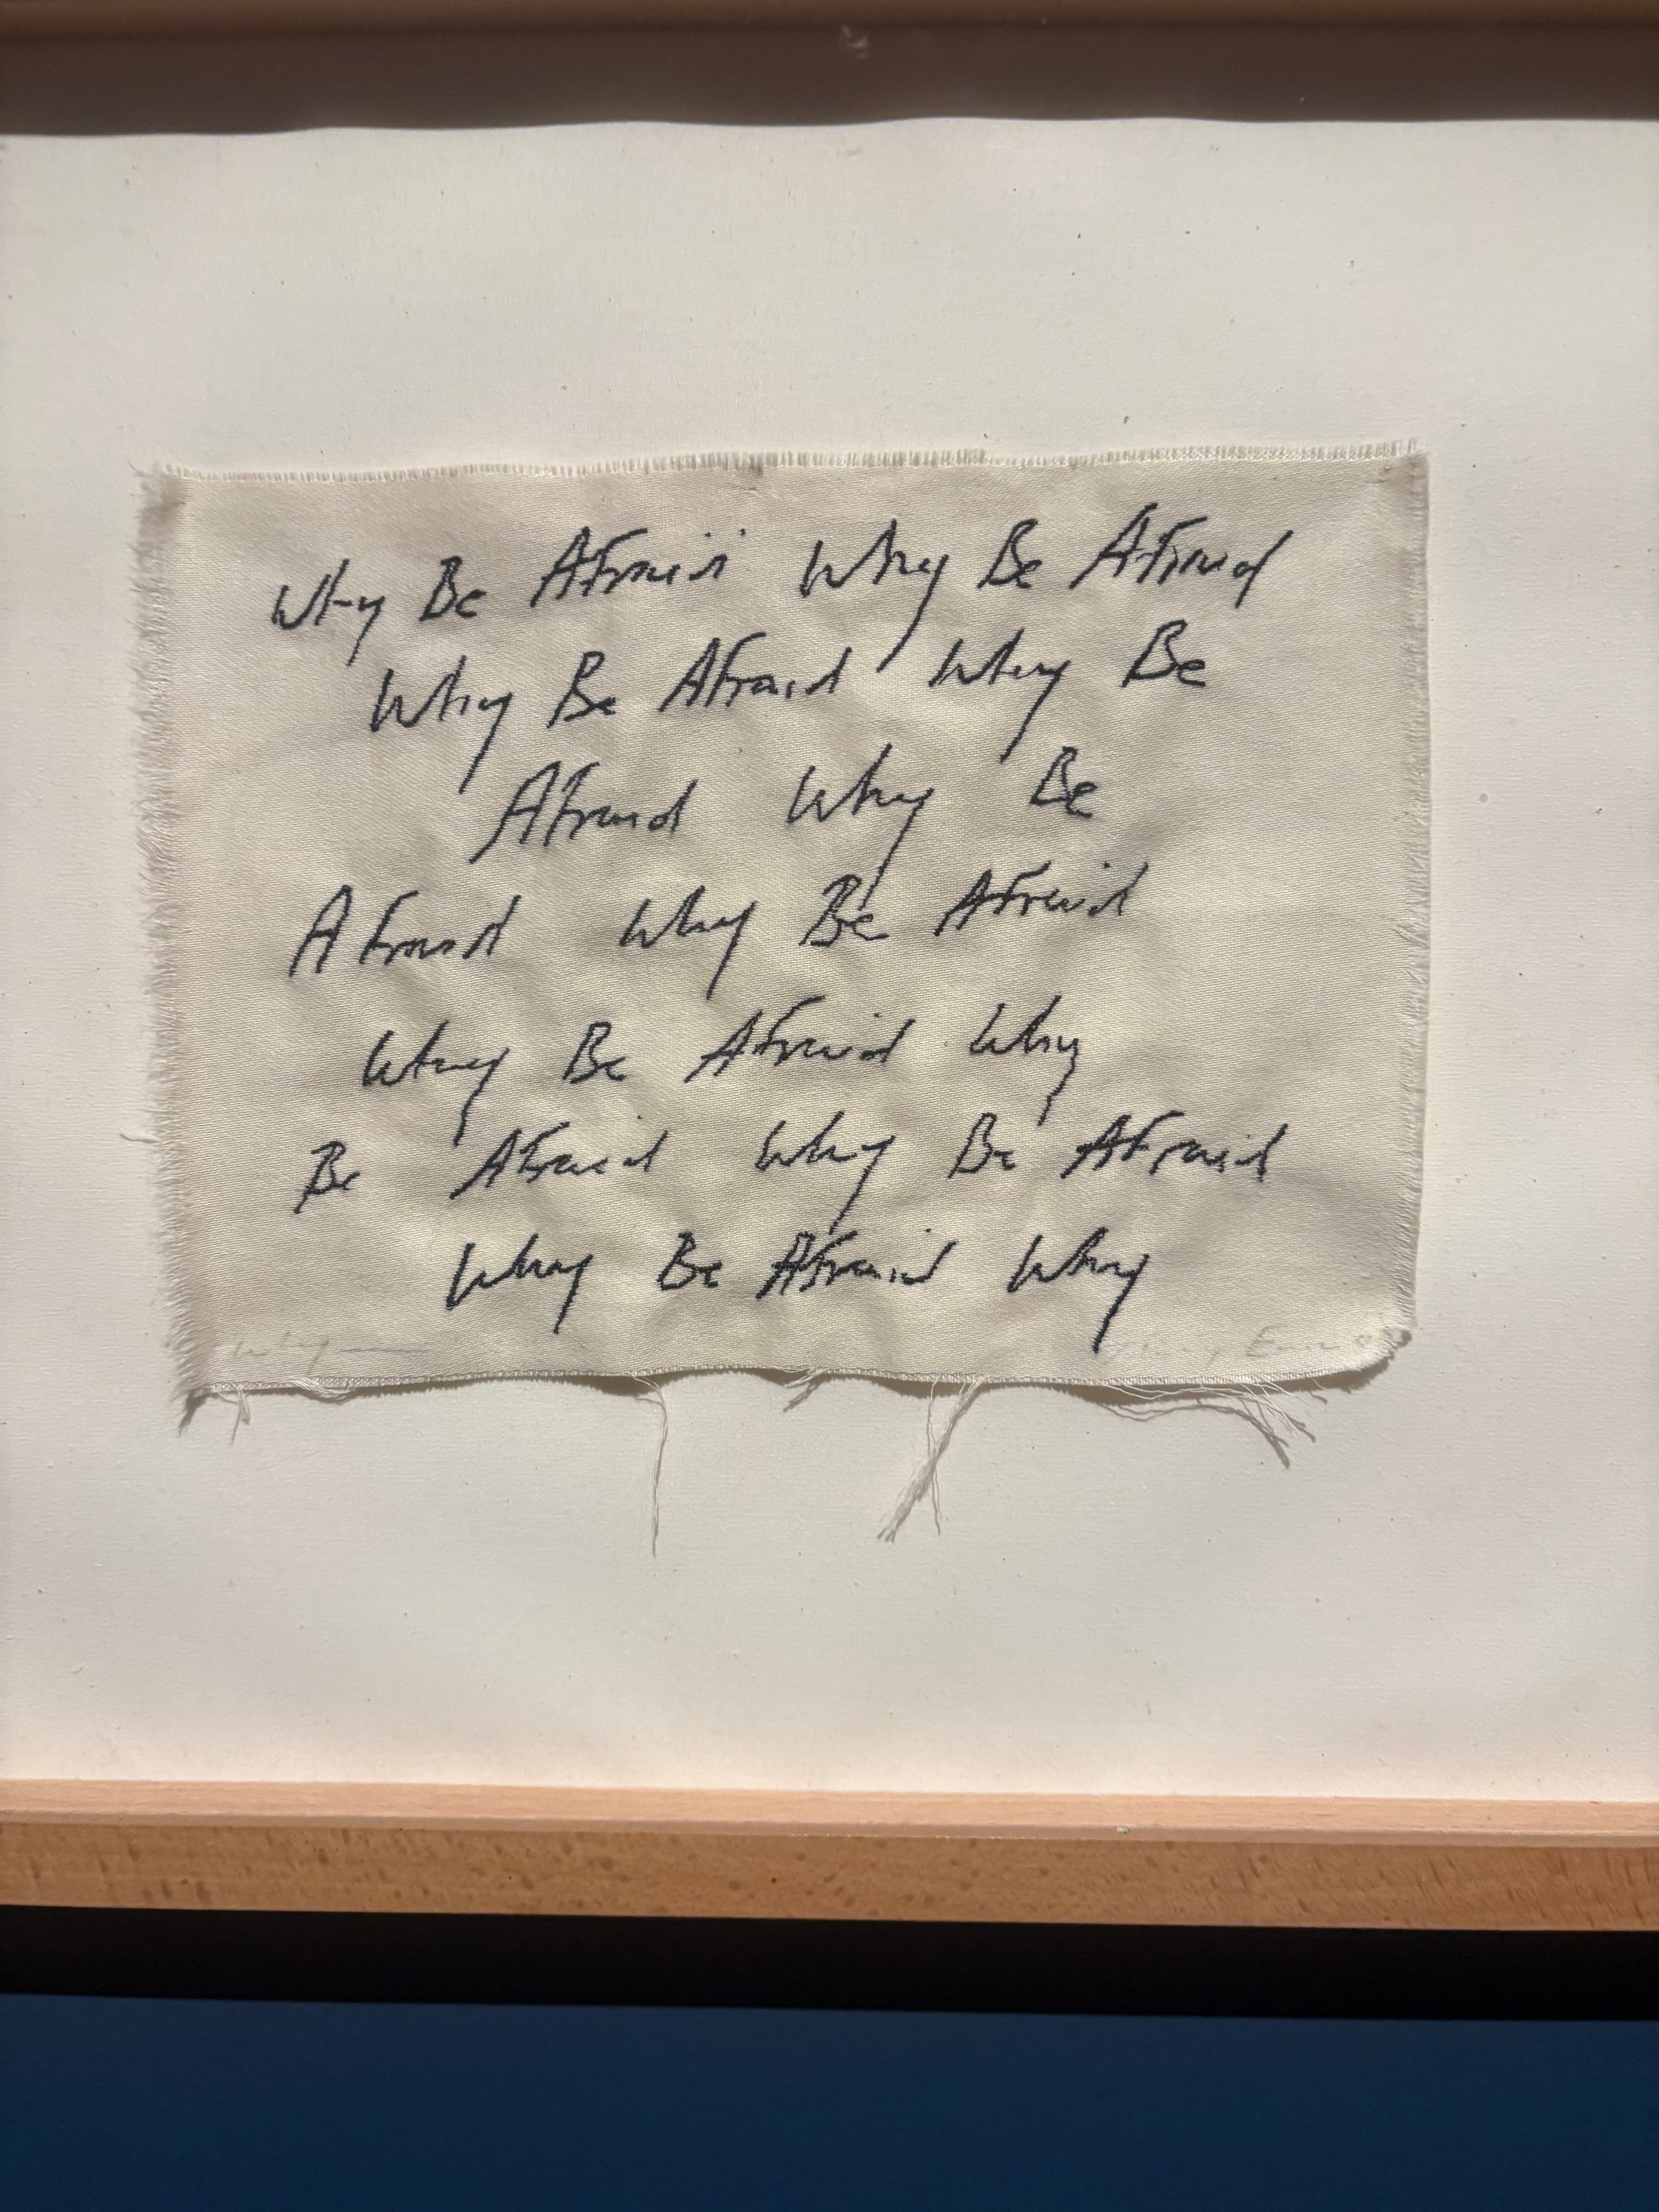 Why Be Afraid Why Be Afraid
Why Be Afraid Why Be
Afraid Why Be
Afraid Why Be Afraid
Why Be Afraid Why
Be Afraid Why Be Afraid
Why Be Afraid Why